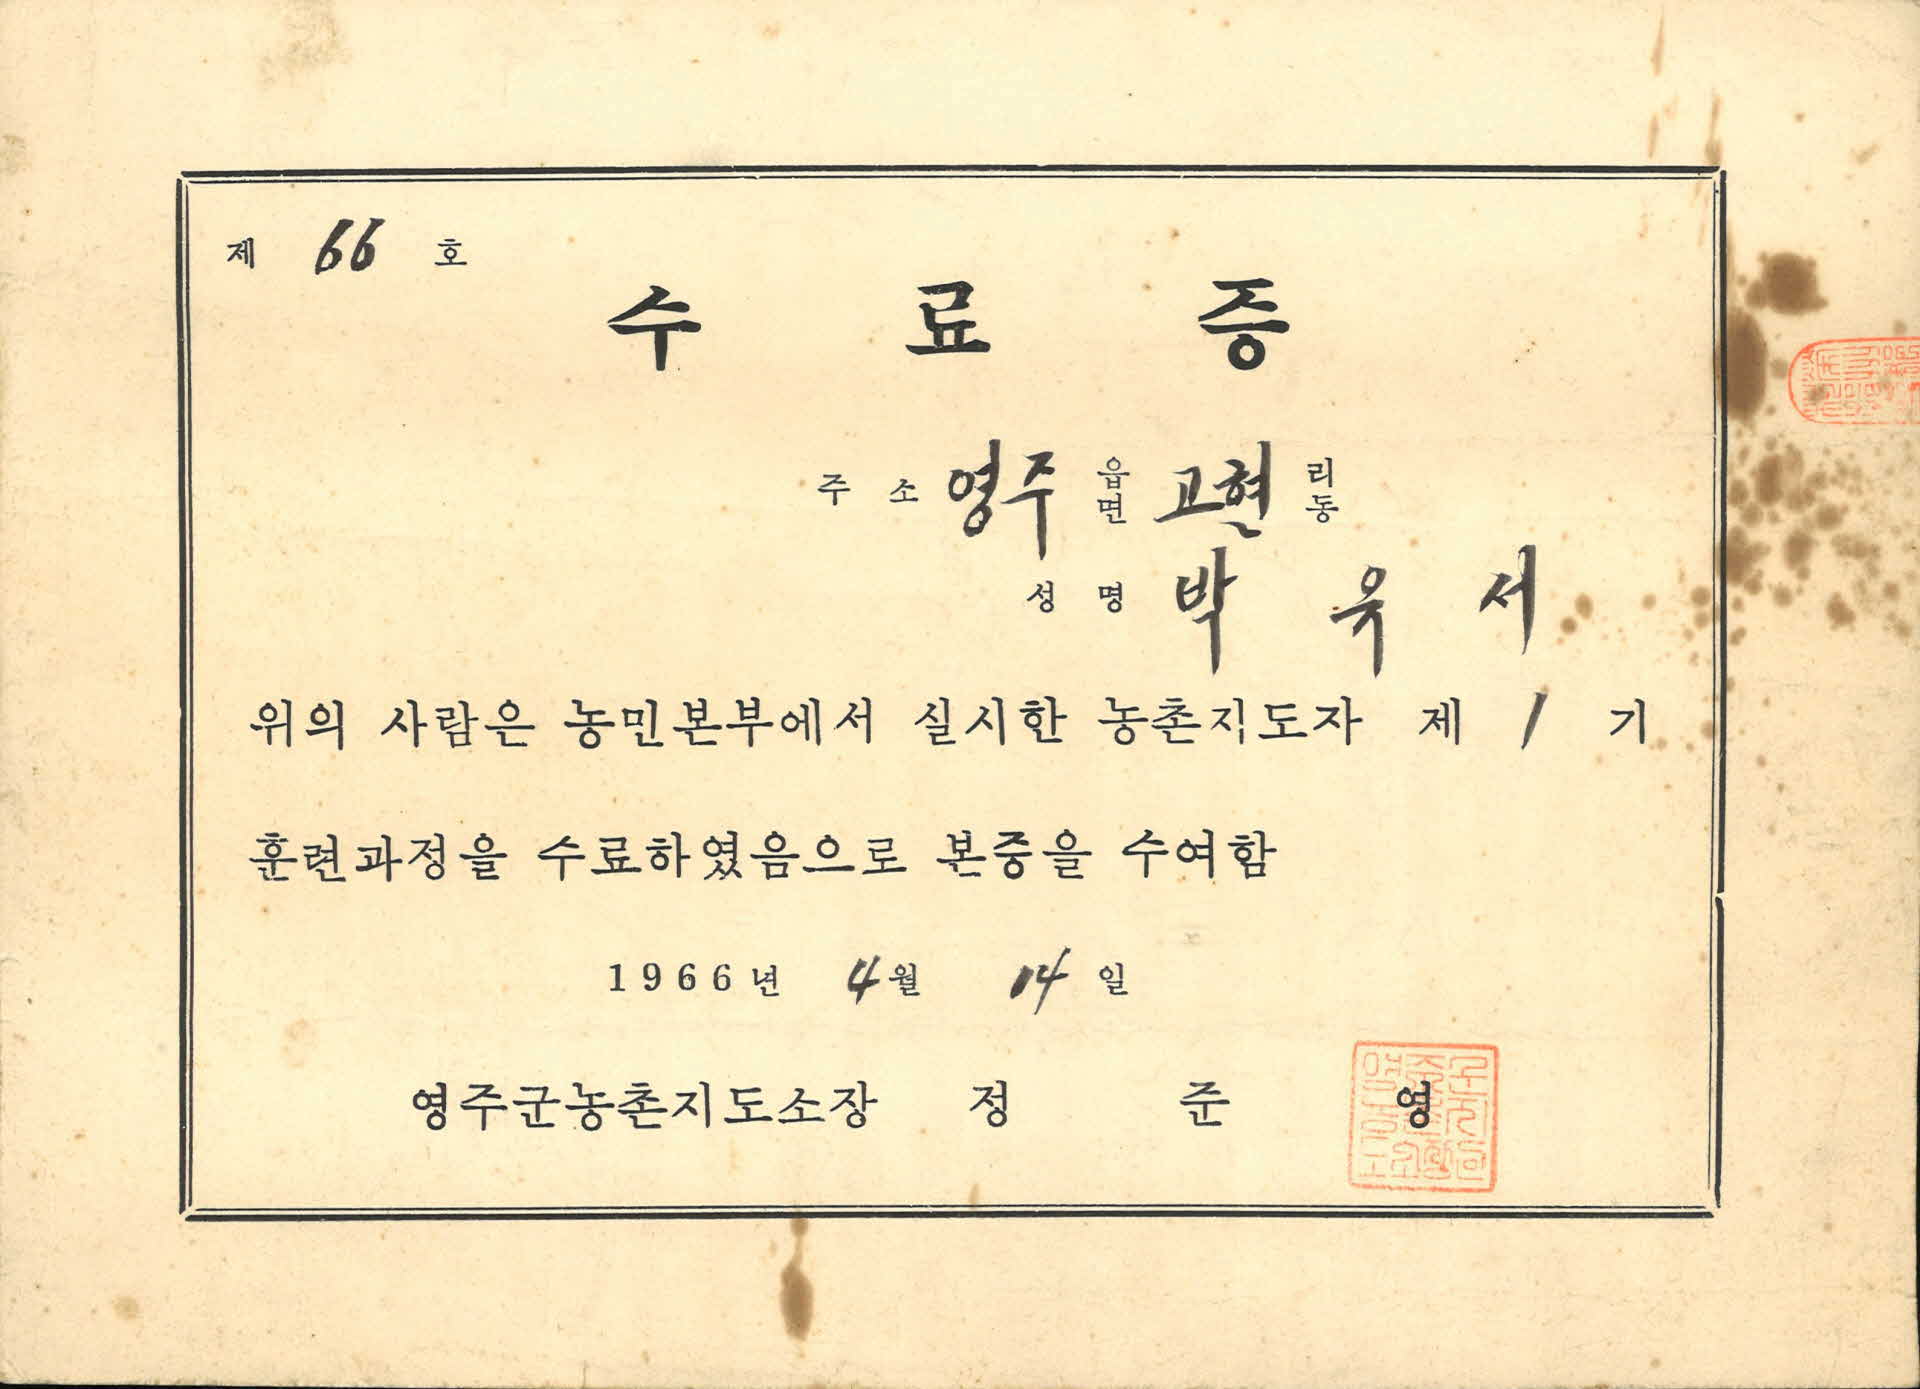 제 66 호
수 료 증
주 소 영주 읍면 고현 리동
성 명 박 유 서
위의 사람은 농민본부에서 실시한 농촌지도자 제 1 기
훈련과정을 수료하였음으로 본증을 수여함
1966년 4월 14일
영주군농촌지도소장 정 준 영